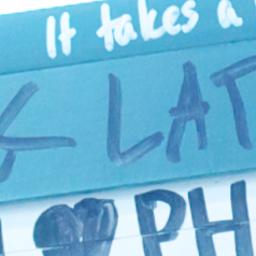 It takes a
& LAT
I ♥ PH